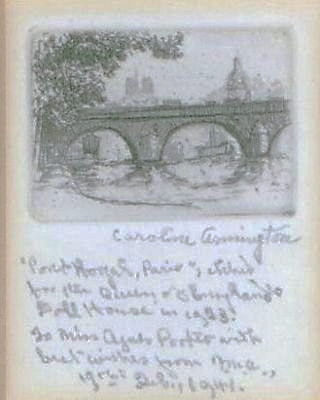 Caroline Armington
"Pont Royal, Paris"; etched
for the Queen of England's
Doll House in 1923.
To Miss Porter with
best wishes from
1941.